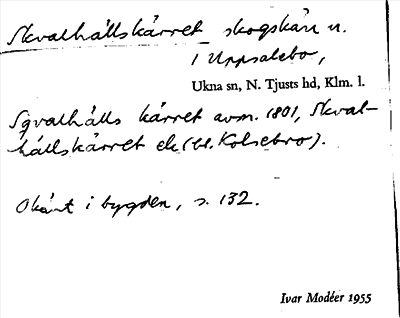 Skvalhållskärret skogskärr n.
i Uppsalebo,
Ukna sn, N. Tjusts hd, Klm. l.
Sqvalhålls kärret avm. 1801, Skval-
hållskärret ek (bl. Kolsebro).
Okänt i bygden, s. 132.
Ivar Modéer 1955